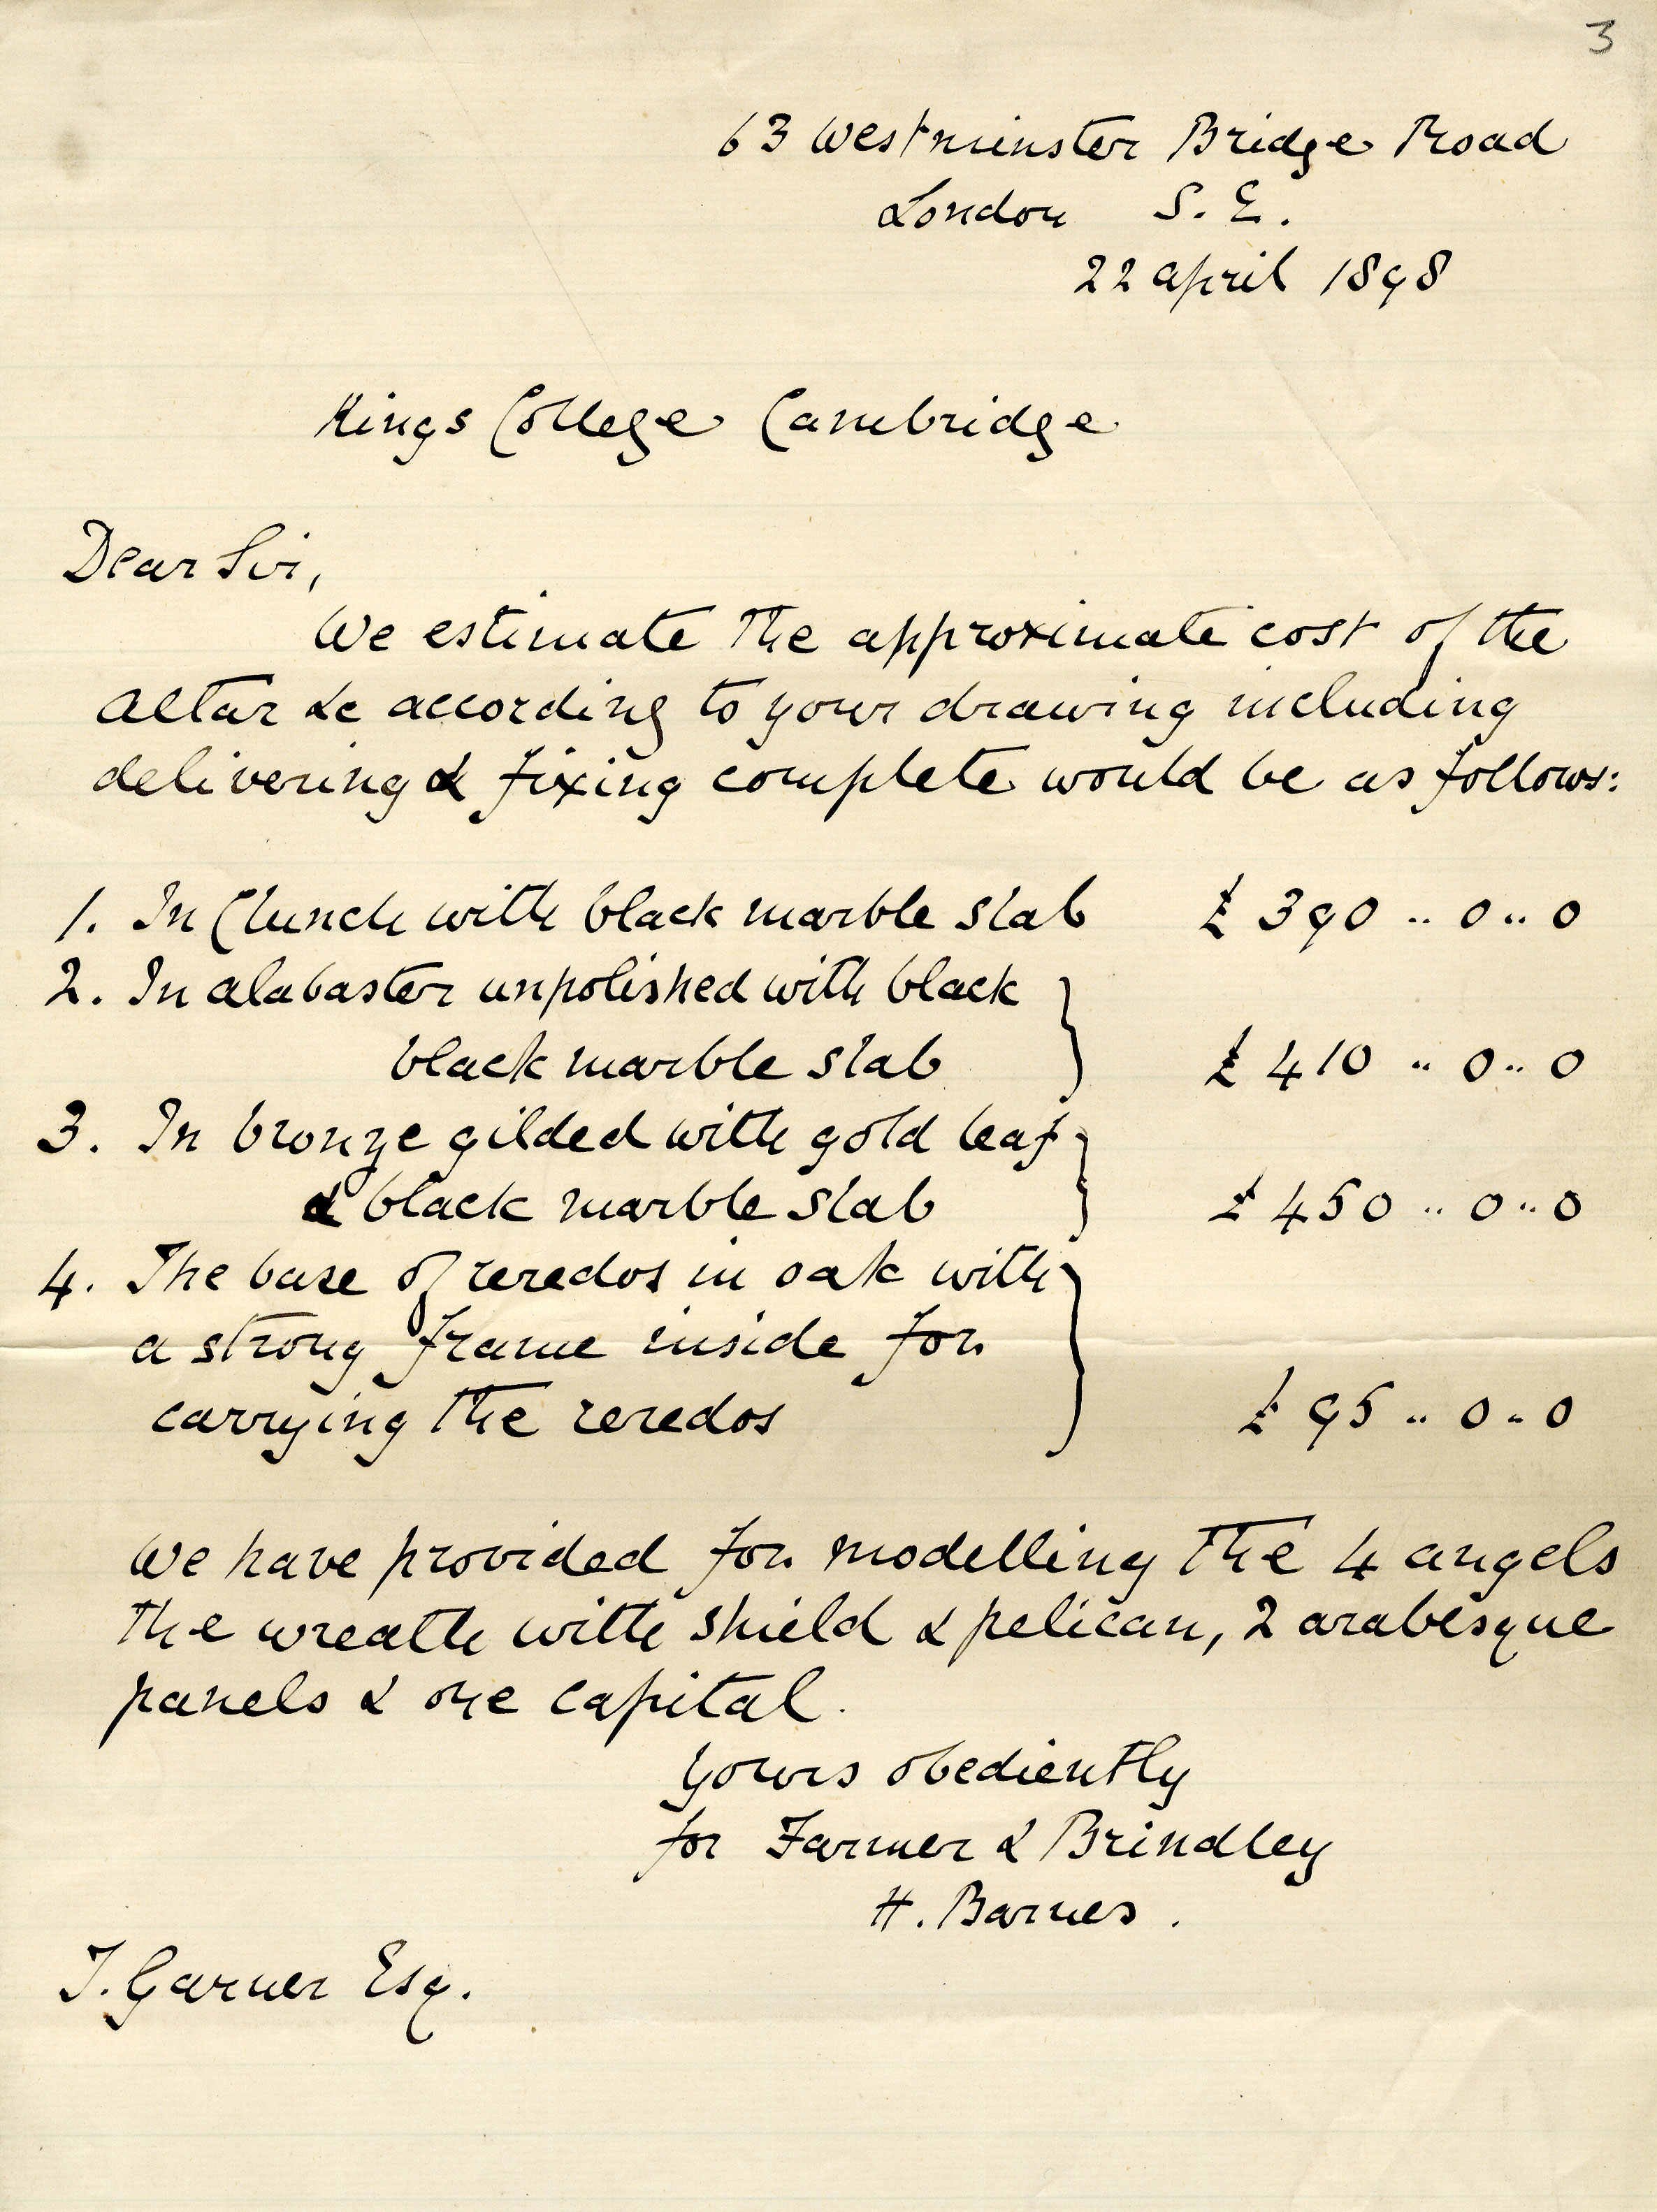 3
63 Westminster Bridge Road
London S. E.
22 april 1898
Kings College Cambridge
Dear Sir,
We estimate the approximate cost of the
altar &c according to your drawing including
delivering & fixing complete would be as follows:
1. In Clunch with black marble slab £ 390 .. 0 .. 0
2. In alabaster unpolished with black
black marble slab £ 410 .. 0 .. 0
3. In bronze gilded with gold leaf
& black marble slab £ 450 .. 0 .. 0
4. The base of reredos in oak with
a strong frame inside for
carrying the reredos £ 95 .. 0 .. 0
We have provided for modelling the 4 angels
the wreath with shield & pelican, 2 arabesque
panels & one capital.
Yours obediently
for Farmer & Brindley
H. Barnes.
T. Garner Esq.